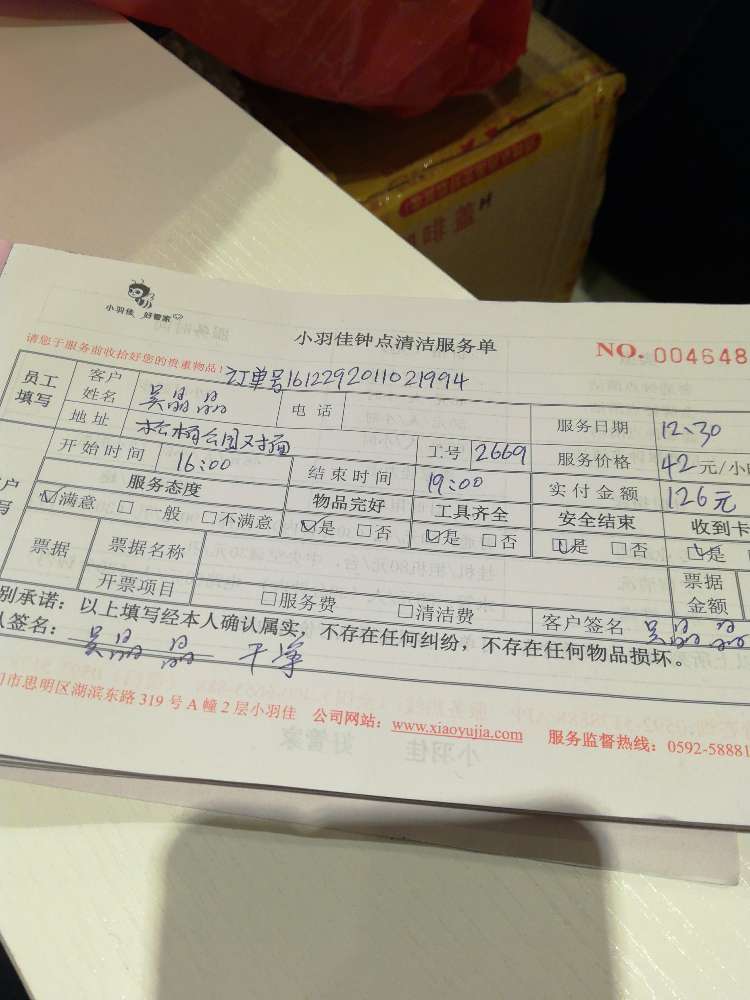 小羽佳 好管家
小羽佳钟点清洁服务单
NO. 004648
请您于服务前收拾好您的贵重物品！
订单号161229201102 1994
员工填写
客户姓名 吴晶晶
电话
服务日期 12:30
地址 松柏公园对面
工号 2669
服务价格 42元/小
开始时间 16:00
结束时间 19:00
实付金额 126元
服务态度 物品完好 工具齐全 安全结束 收到卡
☑满意 □一般 □不满意 ☑是 □否 ☑是 □否 ☑是 □否 ☑是
票据
票据名称
票据金额
开票项目 □服务费 □清洁费
客户签名 吴晶晶
别承诺：以上填写经本人确认属实，不存在任何纠纷，不存在任何物品损坏。
签名：吴晶晶 干净
市思明区湖滨东路 319 号 A 幢 2 层小羽佳 公司网站：www.xiaoyujia.com 服务监督热线：0592-58881